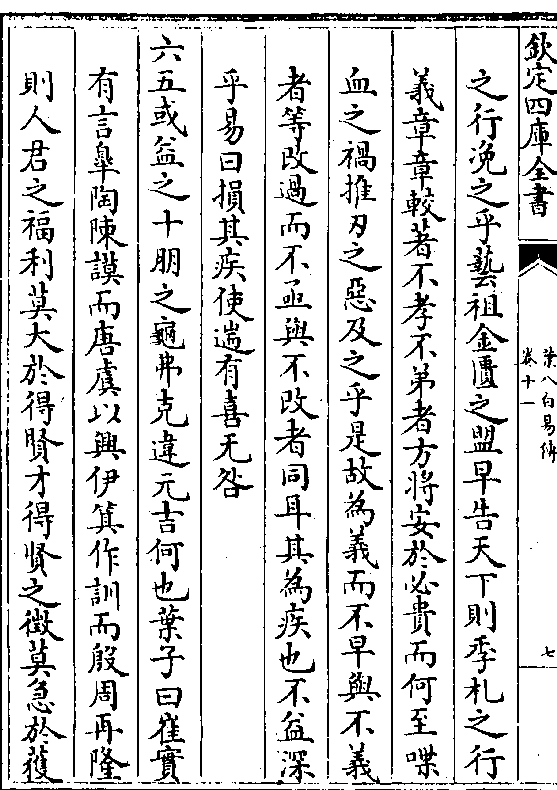 欽定四庫全書
葉八白易傳
卷十一
七
之行浼之乎藝祖金匱之盟早告天下則季札之行
義章章較著不孝不弟者方將安於必貴而何至喋
血之禍推刃之惡及之乎是故為義而不早與不義
者等改過而不亟與不改者同耳其為疾也不益深
乎易曰損其疾使遄有喜无咎
六五或益之十朋之龜弗克違元吉何也葉子曰崔實
有言臯陶陳謨而唐虞以興伊箕作訓而殷周再隆
則人君之福利莫大於得賢才得賢之徵莫急於獲